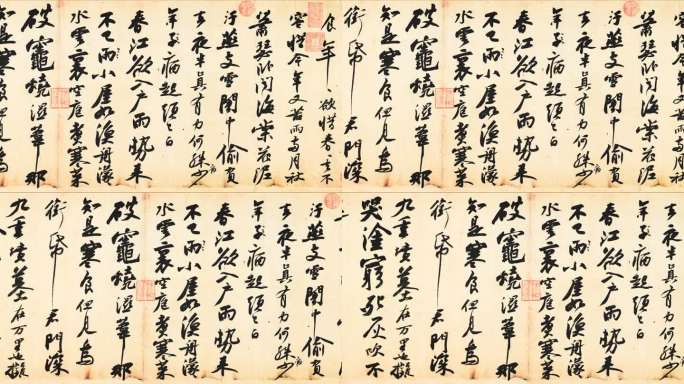 蕭瑟臥聞海棠花泥
污燕支雪闇中偷負
去夜半真有力何殊少
年子病起頭已白
春江欲入戶雨勢來
不已雨小屋如漁舟濛
水雲裏空庖煮寒菜
破竈燒濕葦那
知是寒食但見烏
銜帋君門深
食年〻欲惜春〻去不
容惜今年又苦雨兩月秋
蕭瑟臥聞海棠花泥
污燕支雪闇中偷負
去夜半真有力何殊少
年子病起頭已白
春江欲入戶雨勢來
不已雨小屋如漁舟濛
水雲裏空庖煮寒菜
破竈燒濕葦那
知是寒食但見烏
去夜半真有力何殊少
年子病起頭已白
春江欲入戶雨勢來
不已雨小屋如漁舟濛
水雲裏空庖煮寒菜
破竈燒濕葦那
知是寒食但見烏
銜帋君門深
九重墳墓在万里也擬
哭塗窮死灰吹不
污燕支雪闇中偷負
去夜半真有力何殊少
年子病起頭已白
春江欲入戶雨勢來
不已雨小屋如漁舟濛
水雲裏空庖煮寒菜
破竈燒濕葦那
知是寒食但見烏
銜帋君門深
九重墳墓在万里也擬